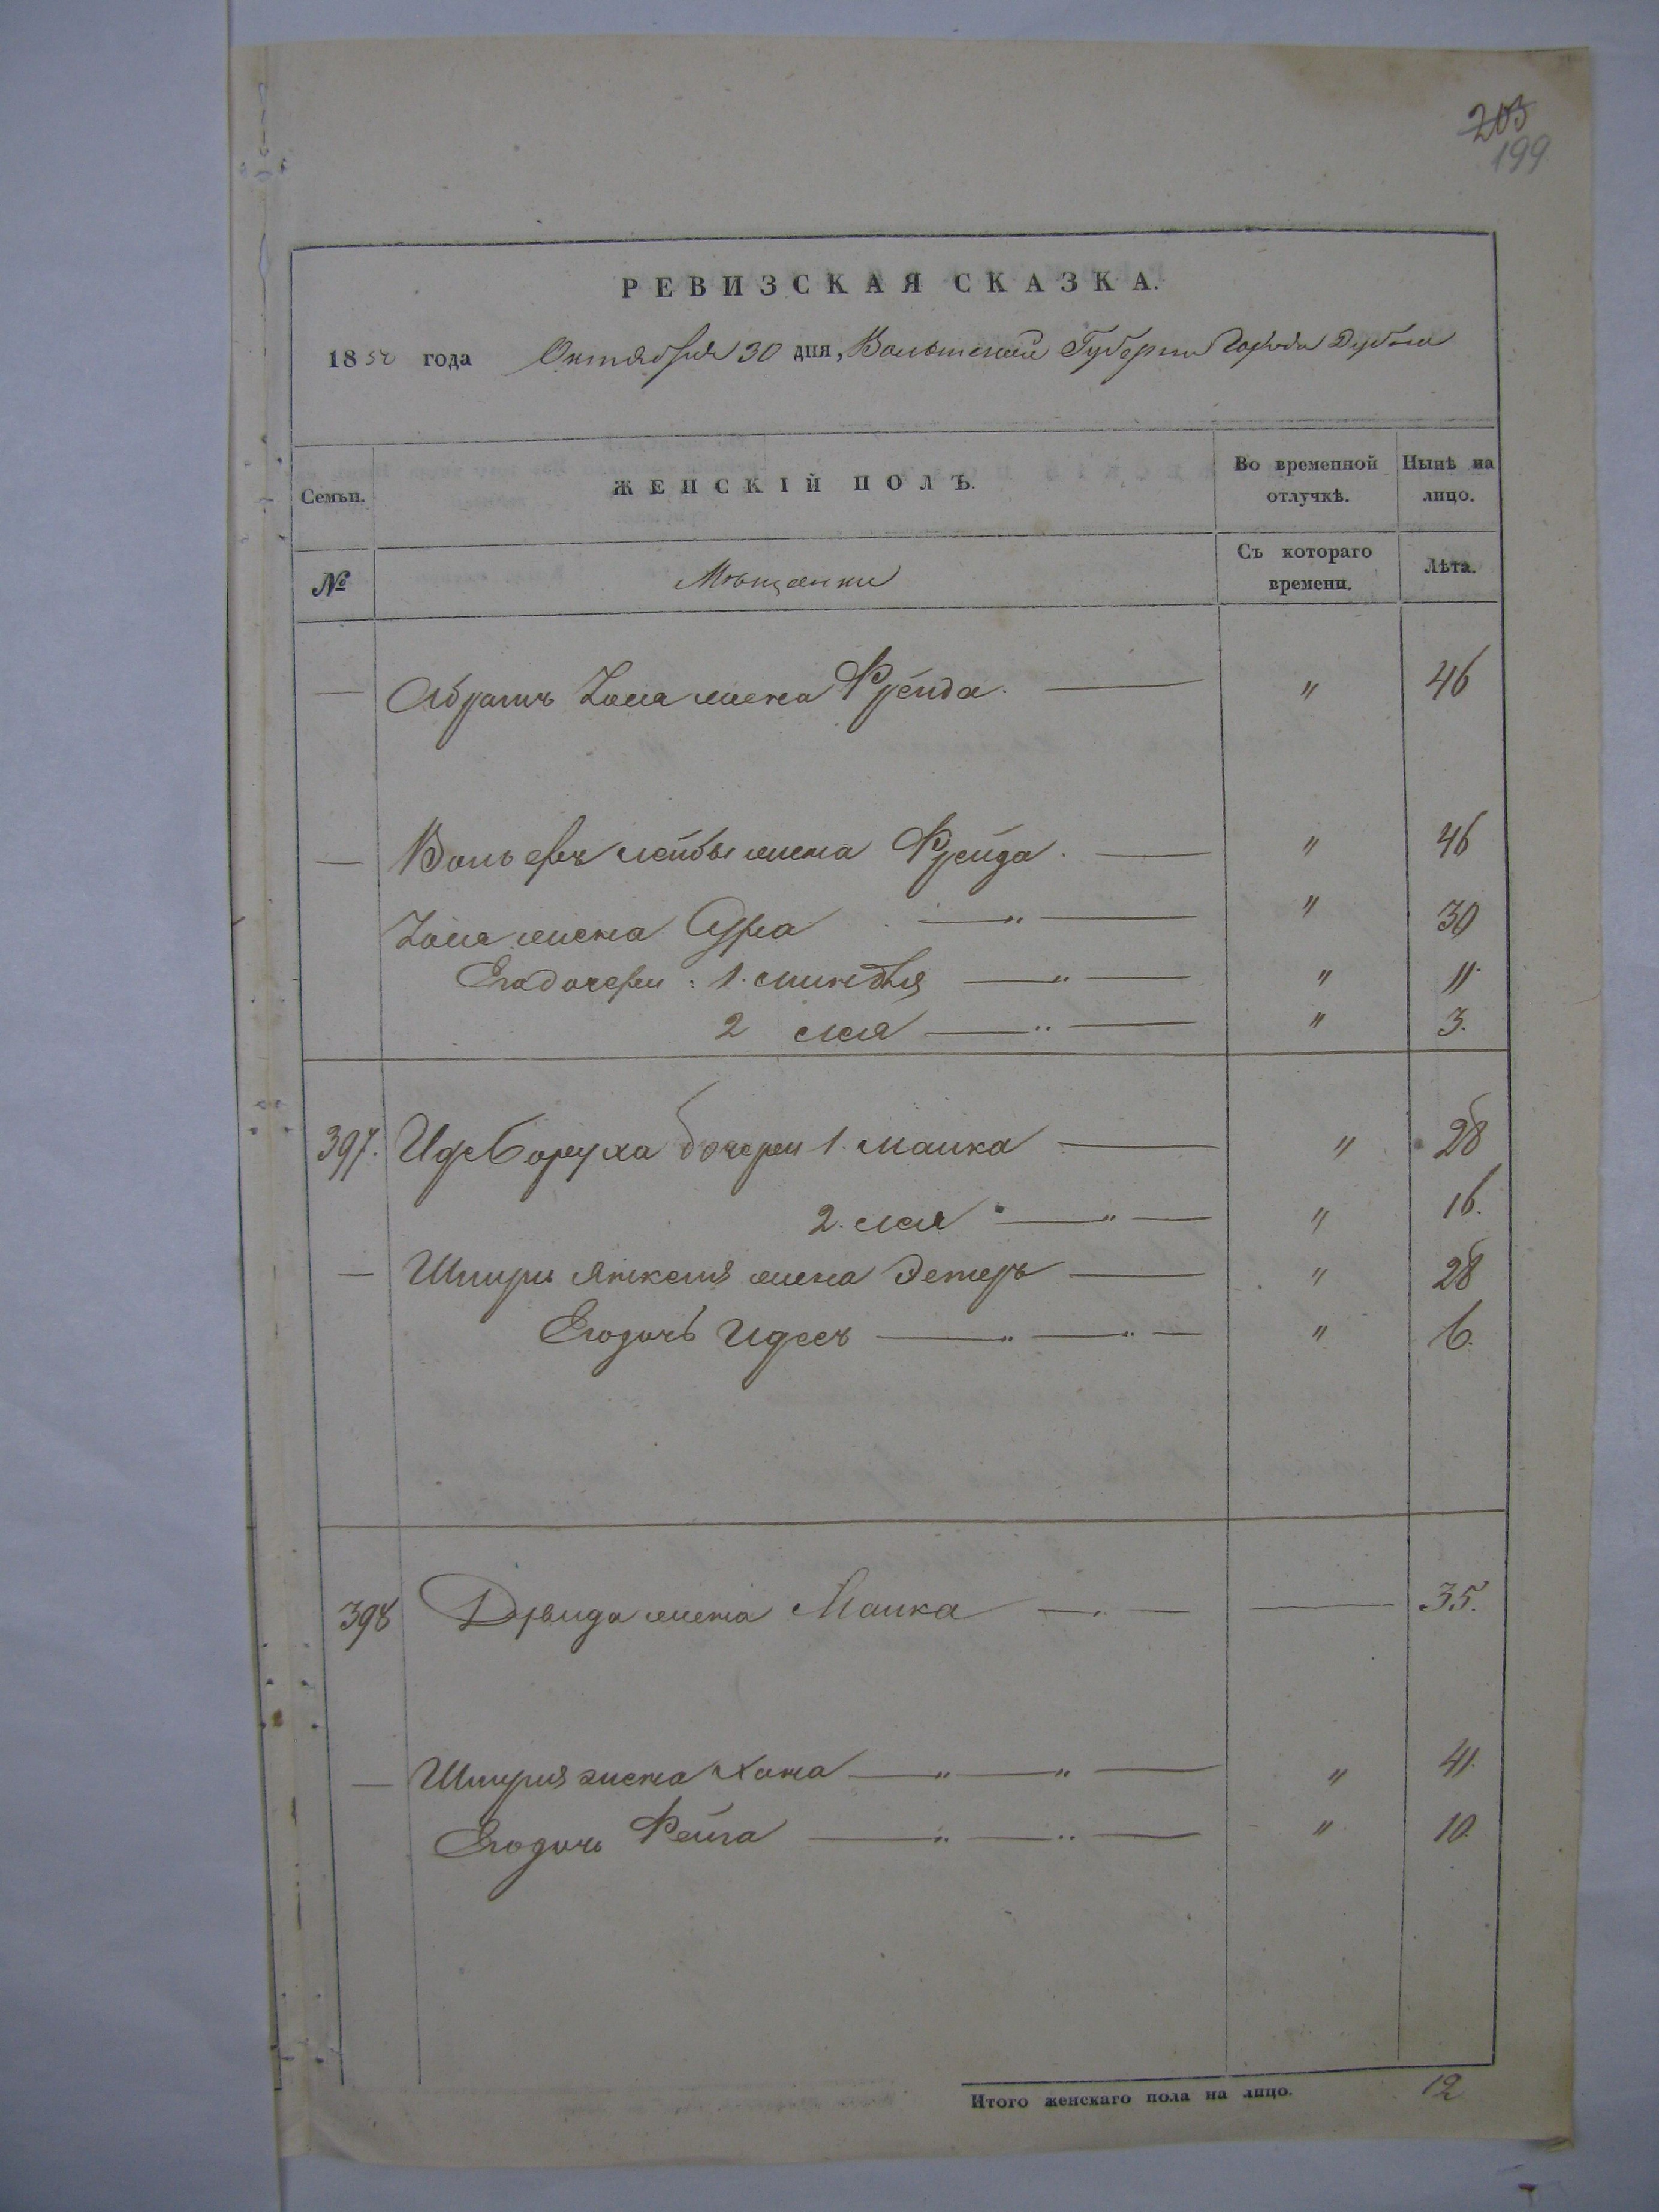 203
199
РЕВИЗСКАЯ СКАЗКА.
1850 года Октября 30 дня, Волынской Губернии Города Дубна
Семьи. ЖЕНСКІЙ ПОЛЪ. Во временной отлучкѣ. Нынѣ на лицо.
№ Мѣщанки Съ котораго времени. Лѣта.
— Абрамъ жена Фрейда. — " 46
— лейбы жена Фрейда. — " 46
жена Сура — " — " 30
Его дочери: 1. Миндля — " — " 11.
2 Лея — " — " 3.
397. Боруха дочери 1. Малка — " 28
2. Лея — " — " 16.
— Шмуль Янкеля жена Эстеръ — " 28
Его дочь Идесъ — " — " — " 6.
398 Давида жена Малка — " — — 35.
— Шмуля жена Хана — " — " — " 41.
Его дочь Фейга — " — " — " 10.
Итого женскаго пола на лицо. 12